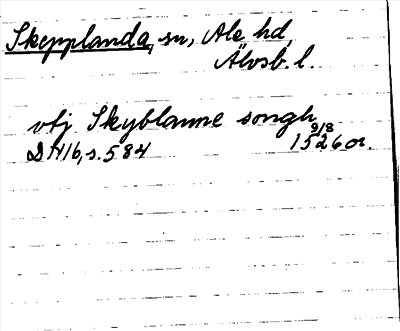 Skepplanda, sn, Ale hd,
Älvsb. l.
vtj Skyblanne songh
9/8
D H 16, s. 584 1526 or.